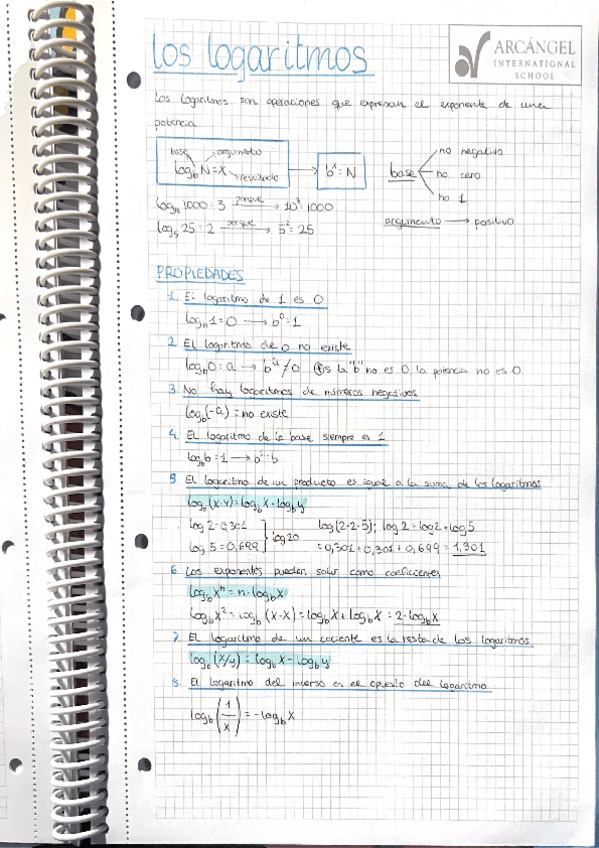 los logaritmos
ARCÁNGEL
INTERNATIONAL
SCHOOL
Los logaritmos son operaciones que expresan el exponente de una
potencia
base argumento
log_b N = x resultado → b^x = N
base no negativo
no cero
no 1
log_10 1000 = 3 porque → 10^3 = 1000
log_5 25 = 2 porque → 5^2 = 25
argumento → positivo
PROPIEDADES
1. El logaritmo de 1 es 0
log_b 1 = 0 → b^0 = 1
2. El logaritmo de 0 no existe
log_b 0 = a → b^a ≠ 0 si la "b" no es 0 la potencia no es 0
3. No hay logaritmos de números negativos
log_b (-a) = no existe
4. El logaritmo de la base siempre es 1
log_b b = 1 → b^1 = b
5. El logaritmo de un producto es igual a la suma de los logaritmos
log_b (x·y) = log_b x + log_b y
log 2 = 0,301
log 5 = 0,699
log 20
log (2·2·5) = log 2 + log 2 + log 5
= 0,301 + 0,301 + 0,699 = 1,301
6. Los exponentes pueden salir como coeficientes
log_b x^n = n · log_b x
log_b x^2 = log_b (x·x) = log_b x + log_b x = 2·log_b x
7. El logaritmo de un cociente es la resta de los logaritmos
log_b (x/y) = log_b x - log_b y
8. El logaritmo del inverso es el opuesto del logaritmo
log_b (1/x) = -log_b x